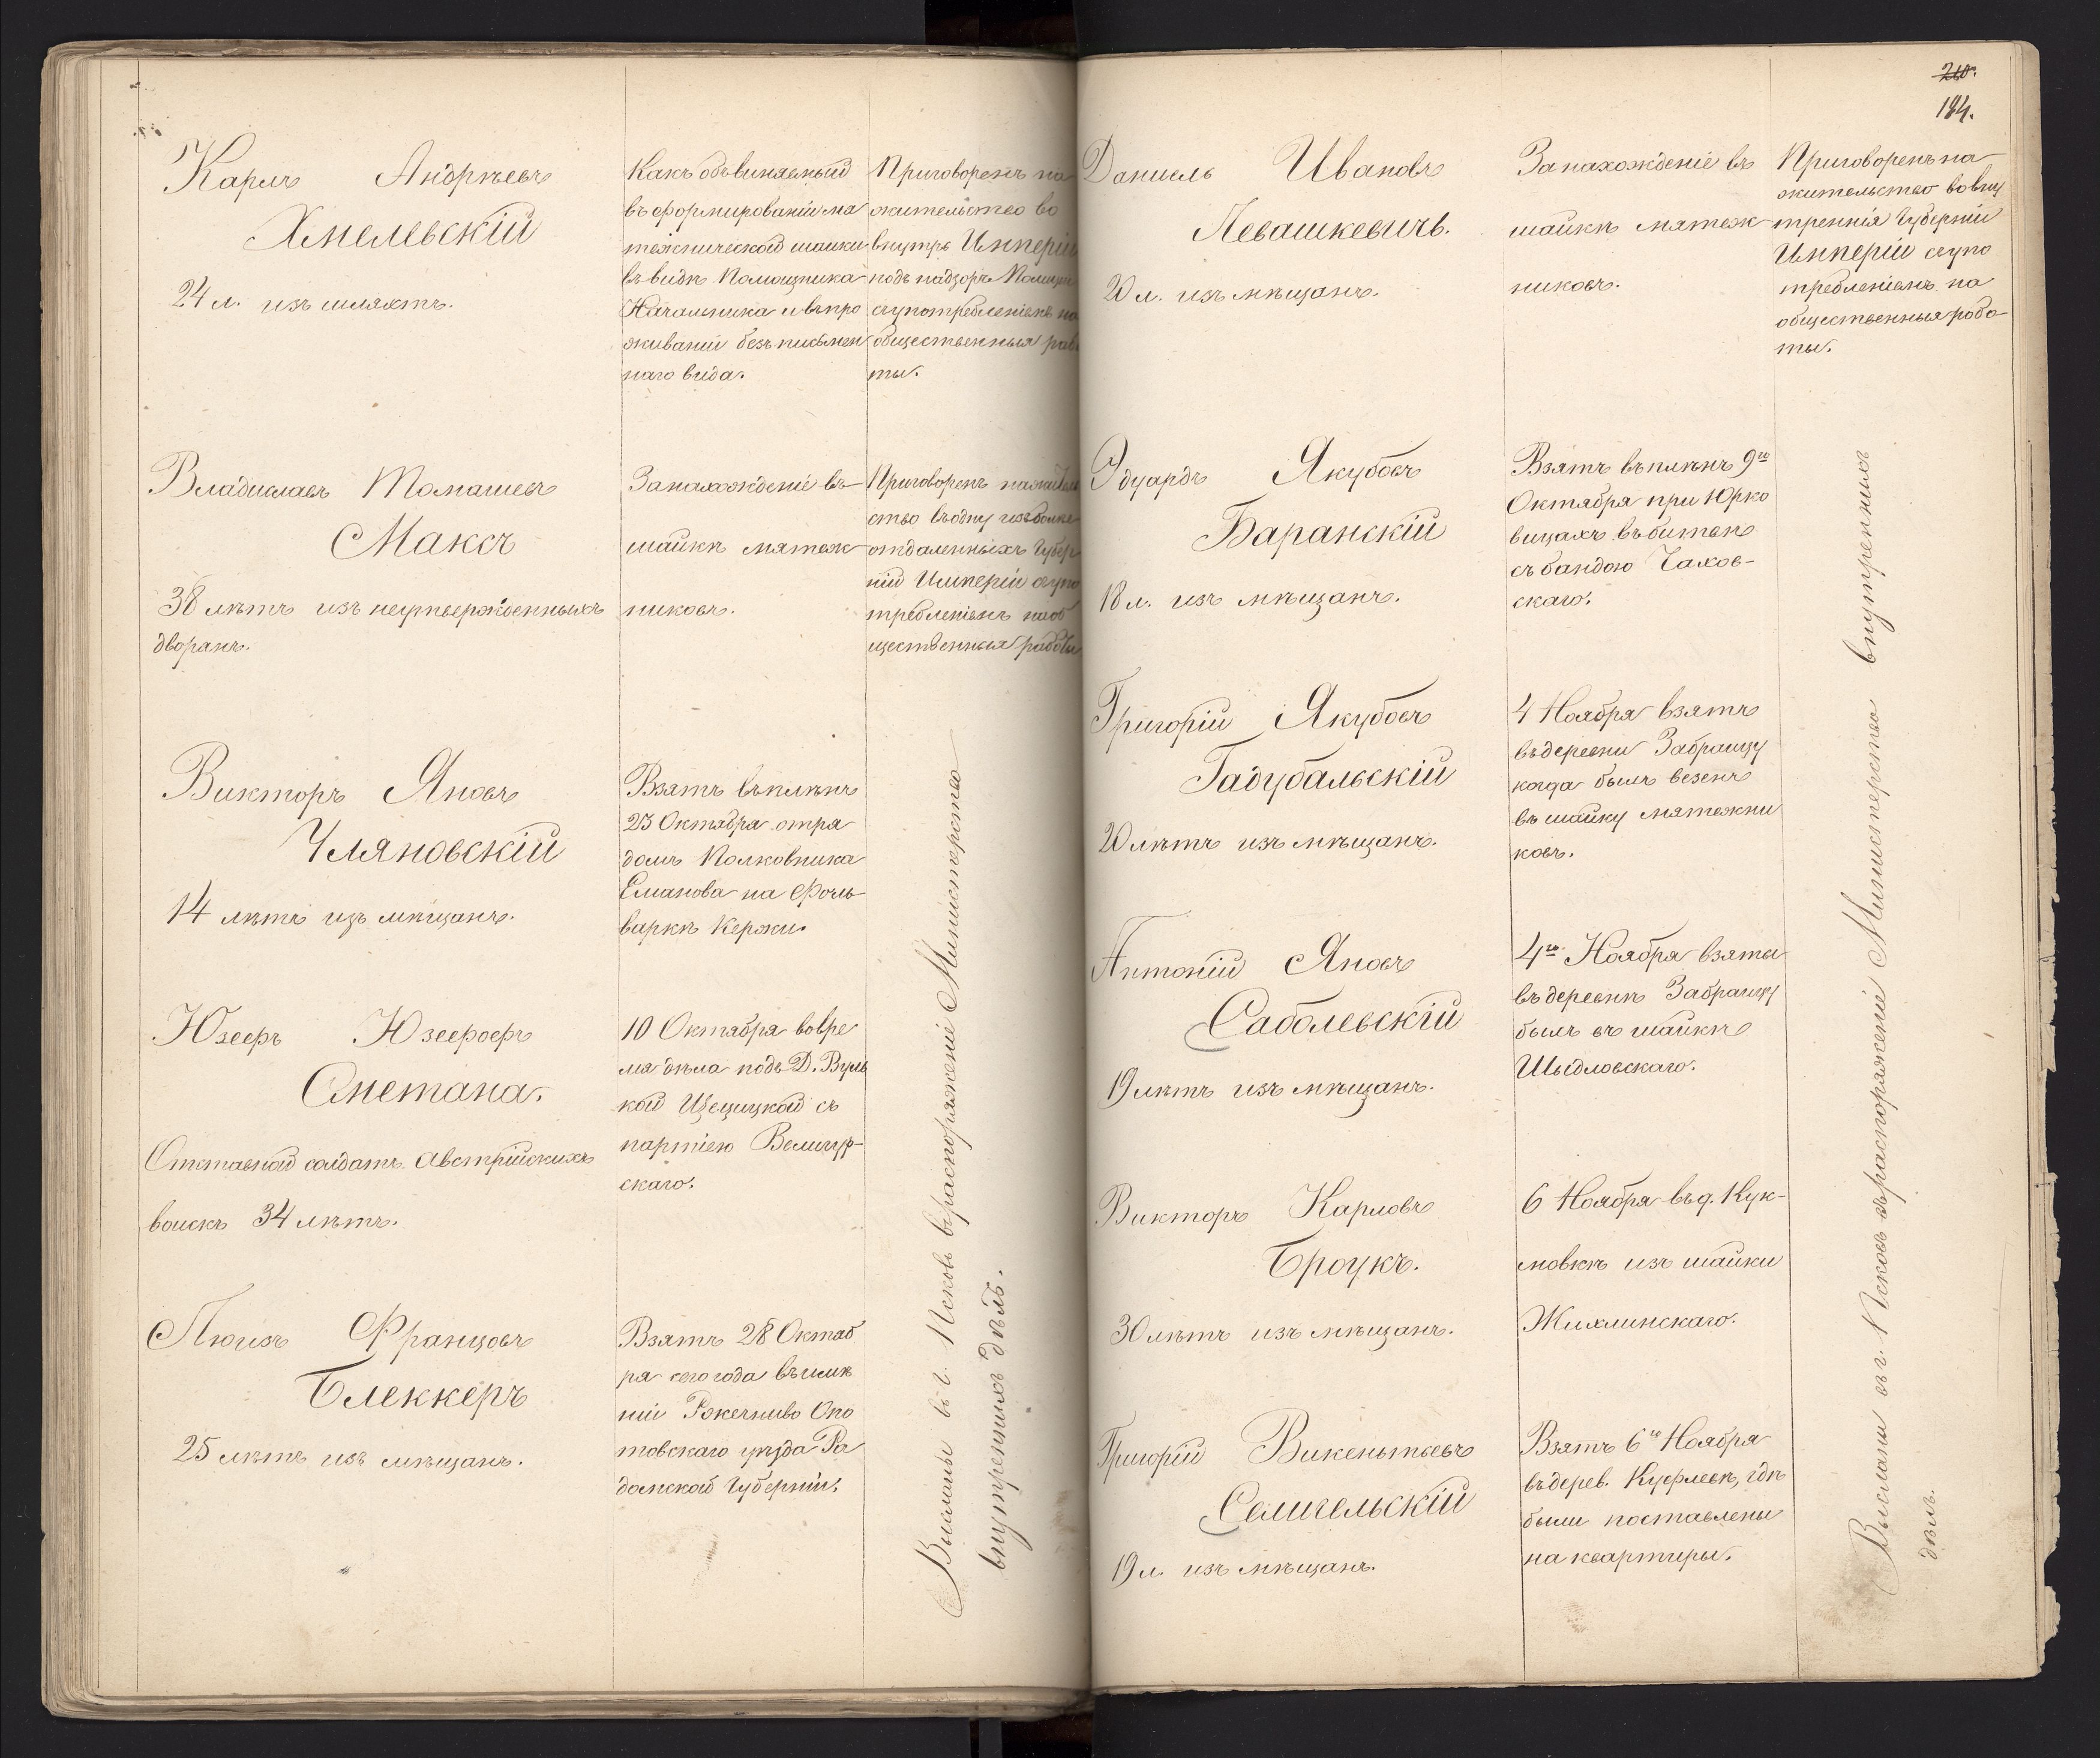 Карлъ Андрѣевъ
Хмелевскій
24 л. изъ шляхтъ.
Какъ объвиняемый
въ формированіи мя
тежнической шайки
въ видѣ Помощника
Начальника и въ про
живаніи безъ письмен
наго вида.
Приговоренъ на
жительство во
внутрь Имперіи
подъ надзоръ Полиціи
съ употребленіемъ на
общественныя рабо
ты.
Владиславъ Томашевъ
Максъ
38 лѣтъ изъ неутвержденныхъ
дворянъ.
За нахожденіе въ
шайкѣ мятеж
никовъ.
Приговоренъ на житель
ство въ одну изъ болѣе
отдаленныхъ Губер
ній Имперіи съ упо
требленіемъ на об
щественныя работы
Викторъ Яновъ
Уляновскій
14 лѣтъ изъ мѣщанъ.
Взятъ въ плѣнъ
23 Октября отря
домъ Полковника
Еманова на Фоль
варкѣ Кержи.
Юзефъ Юзефовъ
Сметана.
Отставной солдатъ Австрійскихъ
войскъ 34 лѣтъ.
10 Октября во вре
мя дѣла подъ Д. Вуль
кой
партіею
скаго.
Люизъ Францовъ
Блеккеръ
25 лѣтъ изъ мѣщанъ.
Взятъ 28 Октяб
ря сего года въ имѣ
ніи Ржечниво Опо
товскаго уѣзда Ра
домской Губерніи.
Высланы въ г. Псковъ въ распоряженіе Министерства
внутреннихъ дѣлъ.
210.
184.
Даніель Ивановъ
Левашкевичъ.
20 л. изъ мѣщанъ.
За нахожденіе въ
шайкѣ мятеж
никовъ.
Приговоренъ на
жительство во вну
треннія Губерніи
Имперіи съ упо
требленіемъ на
общественныя рабо
ты.
Эдуардъ Якубовъ
Баранскій
18 л. изъ мѣщанъ.
Взятъ въ плѣнъ 9го
Октября при Юрко
вицахъ въ битвѣ
съ бандою Чахов-
скаго.
Григорій Якубовъ
Гадубальскій
20 лѣтъ изъ мѣщанъ.
4 Ноября взятъ
въ деревни Забранцу
когда былъ везенъ
въ шайку мятежни
ковъ.
Антоній Яновъ
Саболевскій
19 лѣтъ изъ мѣщанъ.
4го Ноября взяты
въ деревнѣ Забранцу
былъ въ шайкѣ
Шыдловскаго.
Викторъ Карловъ
Броукъ.
30 лѣтъ изъ мѣщанъ.
6 Ноября въ д. Кук-
ловкѣ изъ шайки
Жихлинскаго.
Григорій Викентьевъ
Селигельскій
19 л. изъ мѣщанъ.
Взятъ 6го Ноября
въ дерев. Куфлевѣ, гдѣ
были поставлены
на квартиры.
Высланы въ г. Псковъ въ распоряженіе Министерства внутреннихъ
дѣлъ.